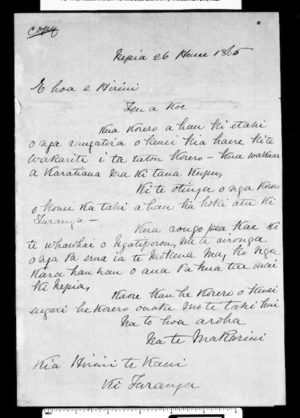 copy
Nepia 26 Hune 1865
E hoa e Hirini
Tena Koe
Kua Korero a hau ki etahi
o nga rangatira o konei kia haere ki te
wakarite i ta tatou Korero - Kua wakaae
a Karatiana ma ki taua Kupu,
Ki te otinga o nga Korero
o konei Ka tahi a hau Ka hoki atu ki
Turanga -
Kua rongo pea Koe Ki
te whawhai o Ngatiporou, me te oronga
o nga Pa erua ia te Mokena
hau hau o ana Pa Kua tae mai
Ki Nepia,
Kaore Kau he Korero o Konei
engari he Korero onake mo te taki
Na to hoa aroha
Na te Makarini
Kia Hirini te Kani
Ki Turanga